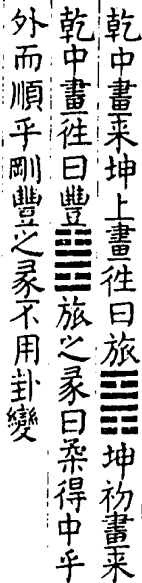 乾中畫来坤上畫徃曰旅䷷坤初畫来
乾中畫徃曰豐䷶旅之彖曰柔得中乎
外而順乎剛豐之彖不用卦變